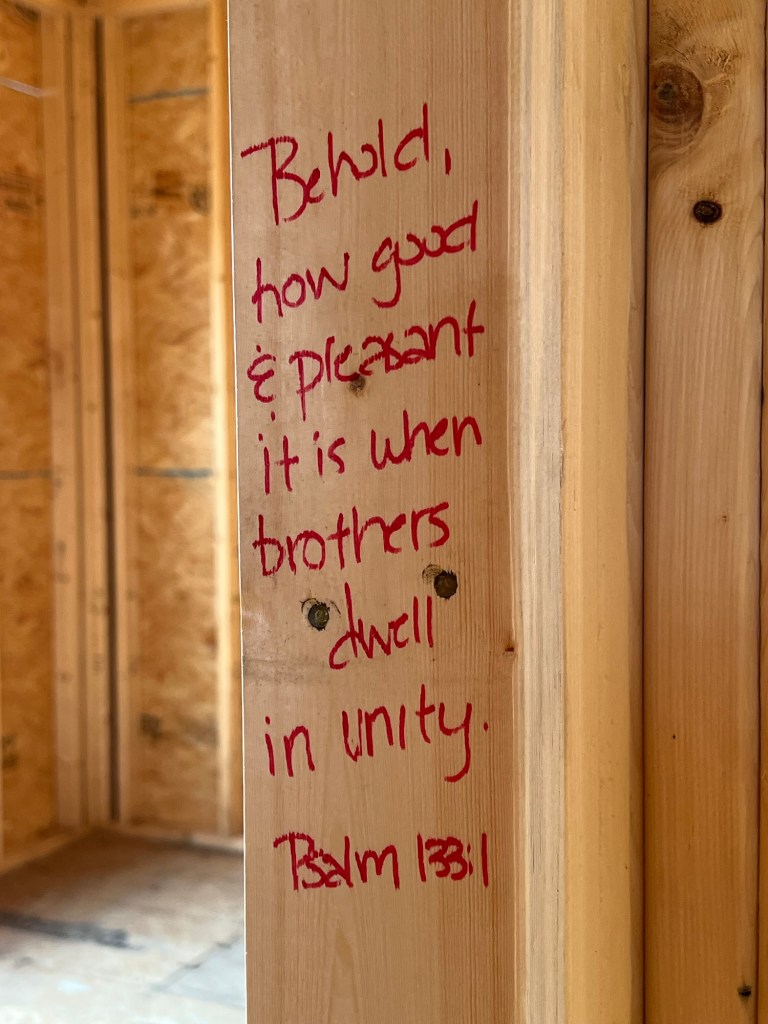 Behold,
how good
& pleasant
it is when
brothers
dwell
in unity.
Psalm 133:1